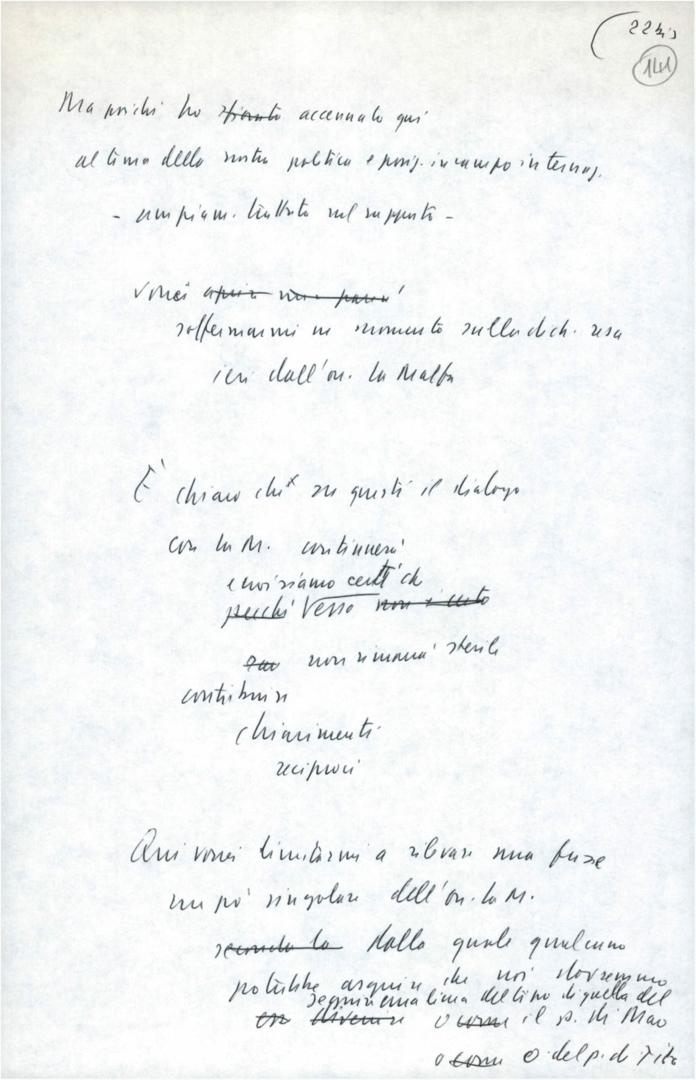 22 bis
141
Ma poiché ho accennato qui
al tema della nostra politica e posiz. in campo internaz.
- ampiam. trattato nel rapporto -
vorrei aprire una parent
soffermarmi un momento sulla dich. resa
ieri dall'on. La Malfa
È chiaro che su questi il dialogo
con La M. continuerà
e noi siamo certi che
perché verso non è certo
non rimarrà sterile
contribuire
chiarimenti
reciproci
Qui vorrei limitarmi a rilevare una frase
un po' singolare dell'on. La M.
secondo la dalla quale qualcuno
potrebbe arguire che noi dovremmo
seguire una linea del tipo di quella del
divenire o come il p. di Mao
o come o del p. di Tito